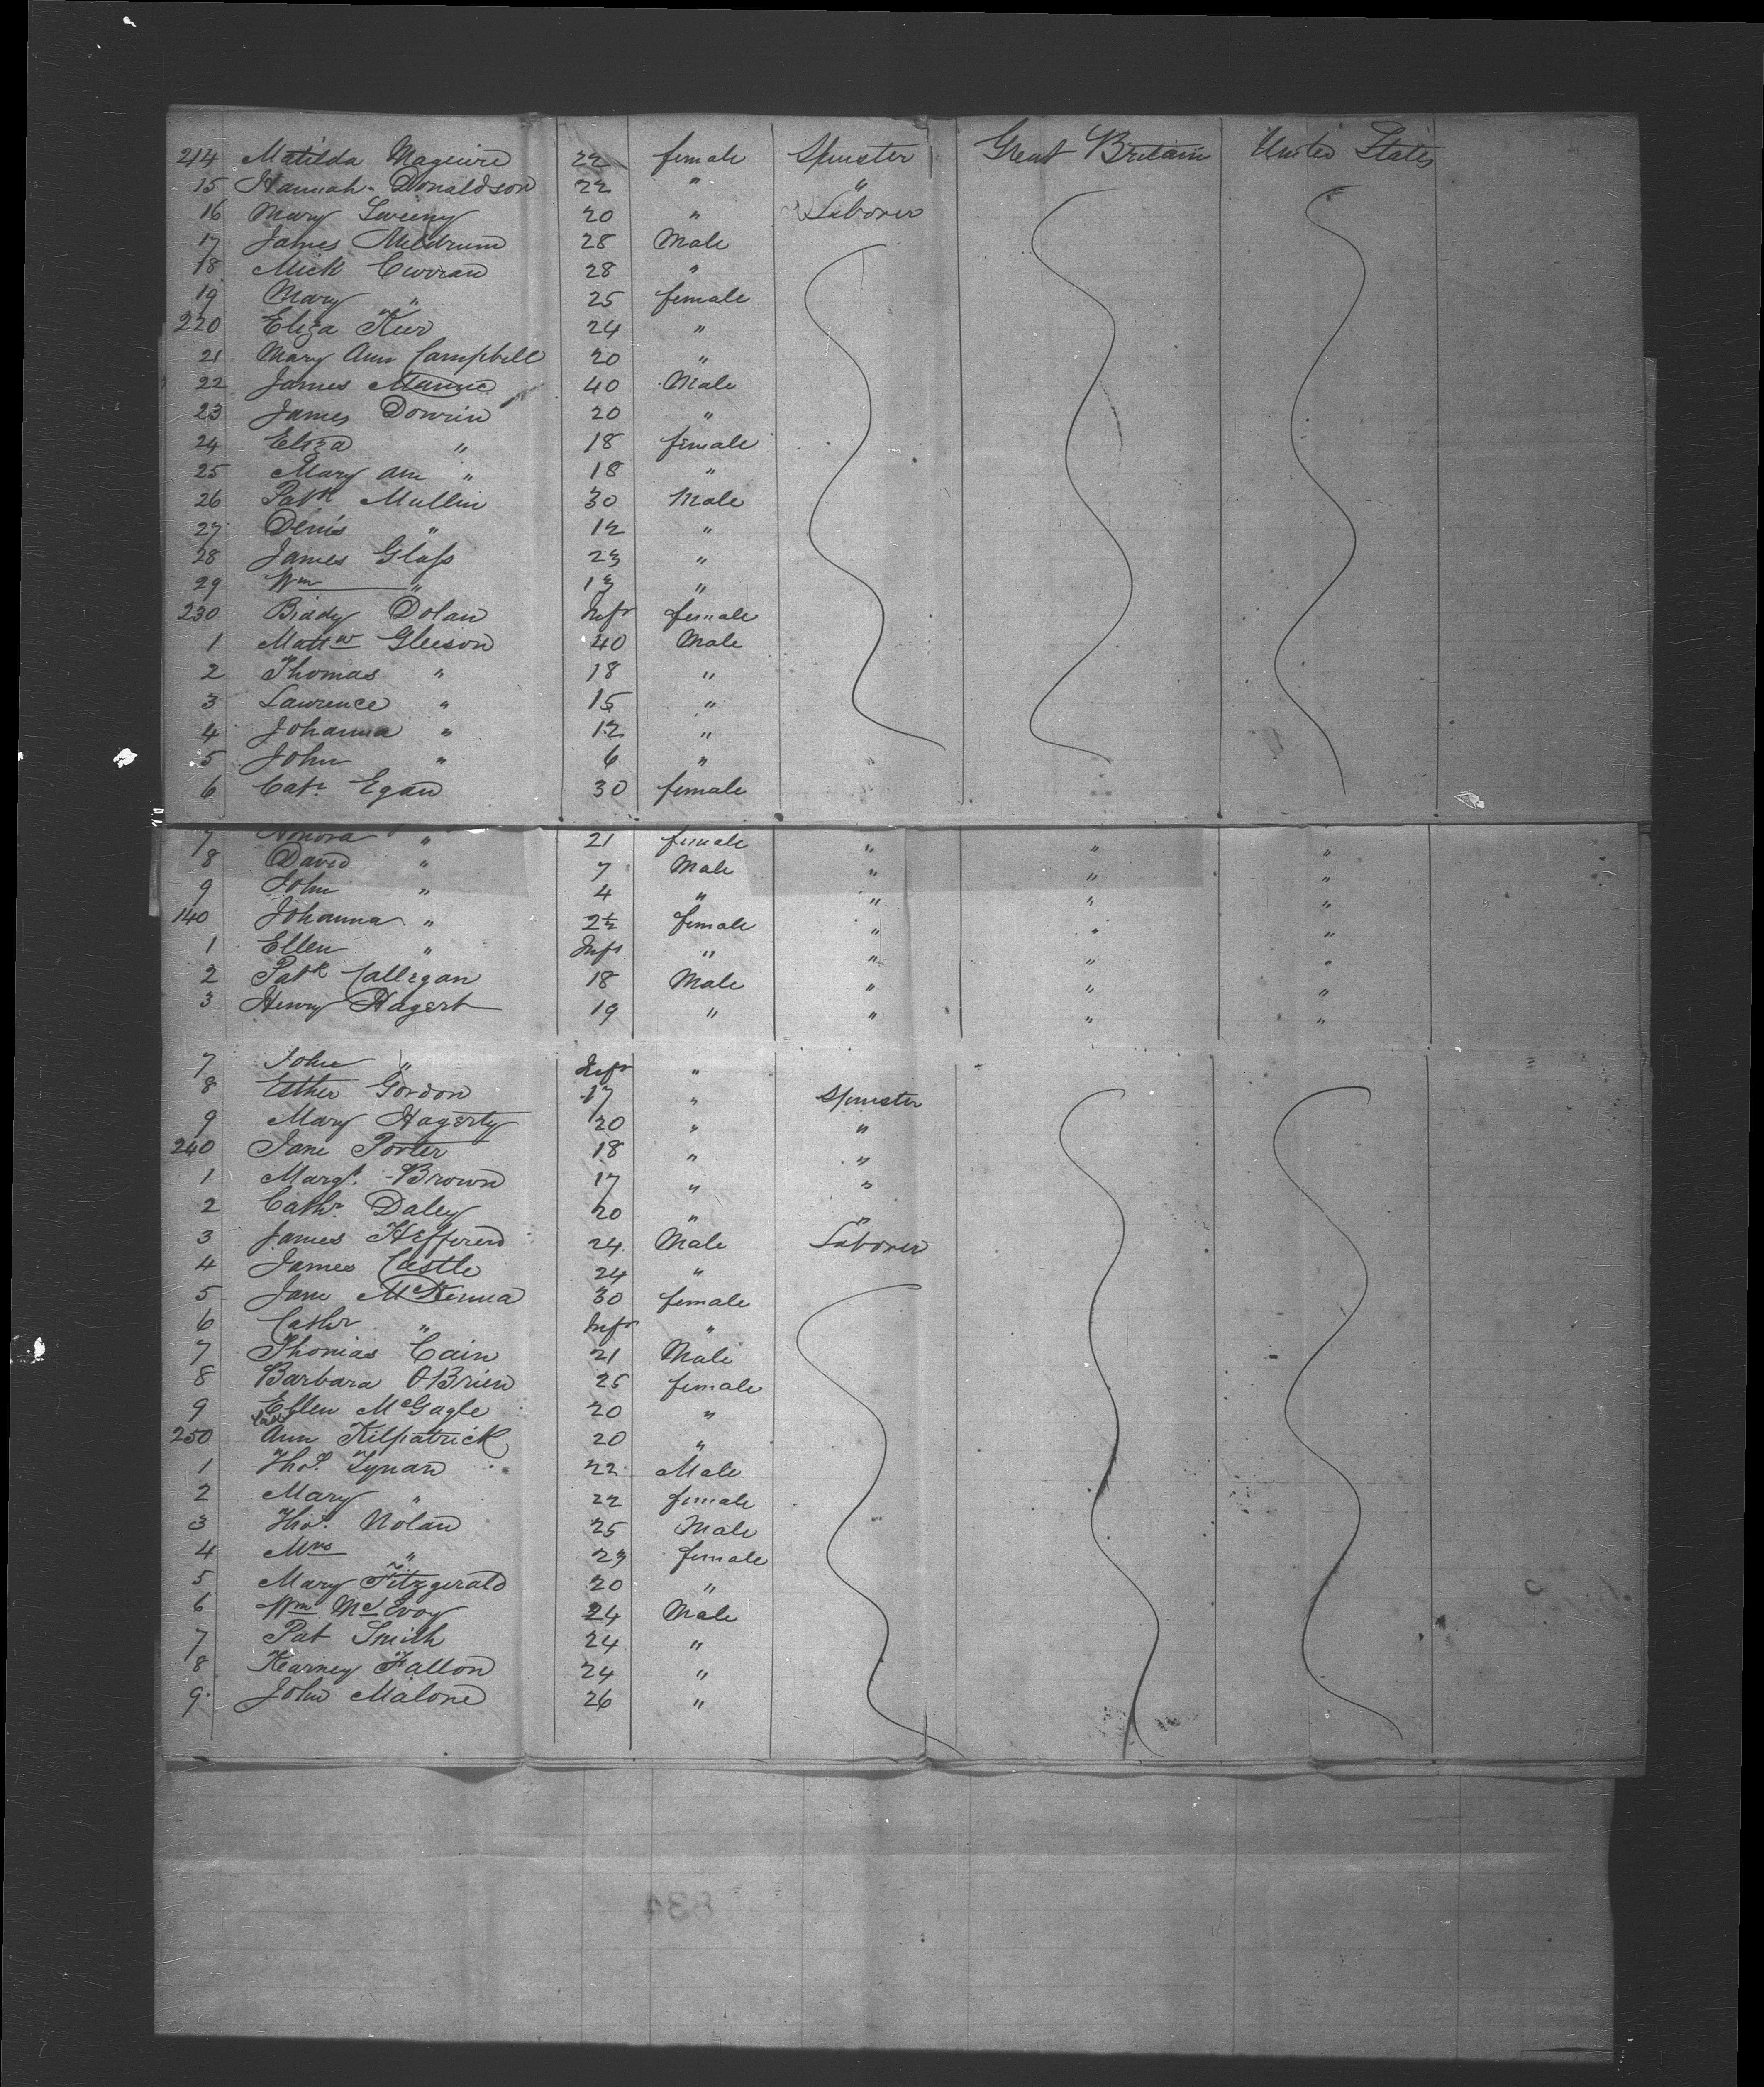 214 Matilda Maguire 22 female Spinster Great Britain United States
15 Hannah Donaldson 22 " "
16 Mary Sweeny 20 " Laborer
17 James Meldrum 28 Male
18 Mick Curran 28 "
19 Mary " 25 female
220 Eliza Kerr 24 "
21 Mary Ann Campbell 20 "
22 James 40 Male
23 James Dowrin 20 "
24 Eliza " 18 female
25 Mary am " 18 "
26 Patk Mullin 30 Male
27 Denis " 12 "
28 James Glass 23 "
29 Wm " 13 "
230 Biddy Dolan Inft female
1 Mattw Gleeson 40 Male
2 Thomas " 18 "
3 Lawrence " 15 "
4 Johanna " 12 "
5 John " 6 " "
6 Cath Egan 30 female
7 Honora " 21 female " " "
8 David " 7 Male " " "
9 John " 4 " " " "
140 Johanna " 2½ female " " "
1 Ellen " Inft " " " "
2 Patk Calligan 18 Male " " "
3 Henry Hagert 19 " " " "
7 John " Inft "
8 Esther Gordon 17 " Spinster
9 Mary Hagerty 20 " "
240 Jane Porter 18 " "
1 Margt. Brown 17 " "
2 Cathr. Daley 20 " "
3 James Heffren 24 Male Laborer
4 James Castle 24 "
5 Jane McKenna 30 female
6 Cathr " Inft "
7 Thomas Cain 21 Male
8 Barbara OBrien 25 female
9 Ellen McGagle 20 "
250 Ann Kilpatrick 20 "
1 Thos. Tynan 22 Male
2 Mary " 22 female
3 Thos. Nolan 25 Male
4 Mrs " 23 female
5 Mary Fitzgerald 20 "
6 Wm McEvoy 24 Male
7 Pat Smith 24 "
8 Kearney Fallon 24 "
9 John Malone 26 "
834